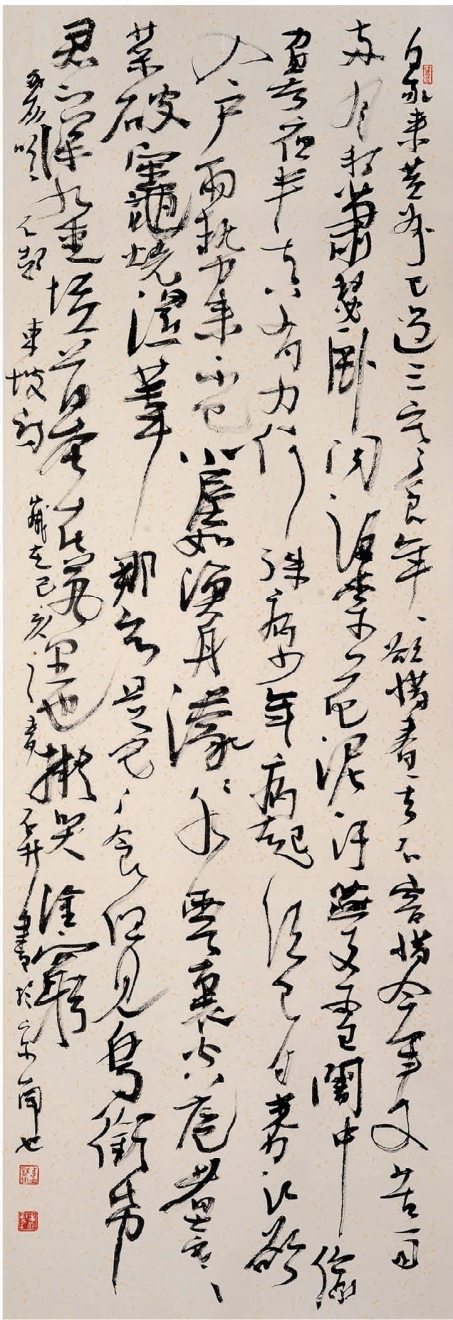 自我来黄州已過三寒食年々欲惜春々去不容惜今年又苦雨
两月秋蕭瑟卧闻海棠花泥汙燕支雪闇中偷
負去夜半真有力何殊病少年病起須已白春江欲
入户雨势来不已小屋如漁舟濛々水雲裏空庖煮寒
菜破竈燒濕葦那知是寒食但見烏銜紙
君门深九重墳墓在萬里也擬哭塗窮
死灰吹不起 東坡詩 歲在己亥之春 書於京南也